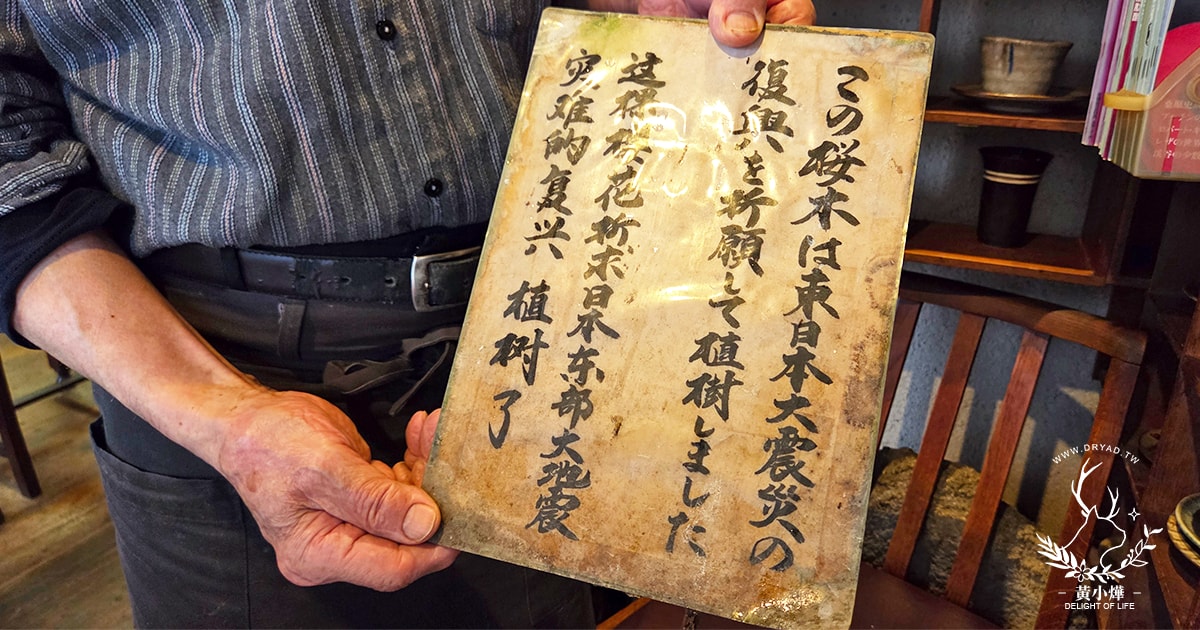 この桜木は東日本大震災の
復興を祈願して植樹しました
这棵樱花祈求日本东部大地震
灾难的复兴 植树了
WWW.DRYAD.TW
黃小燁
DELIGHT OF LIFE